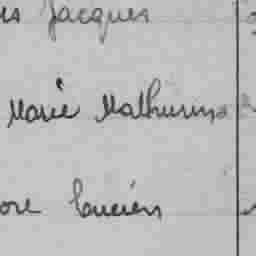 is Jacques
Marie Mathurins
ore Lucien